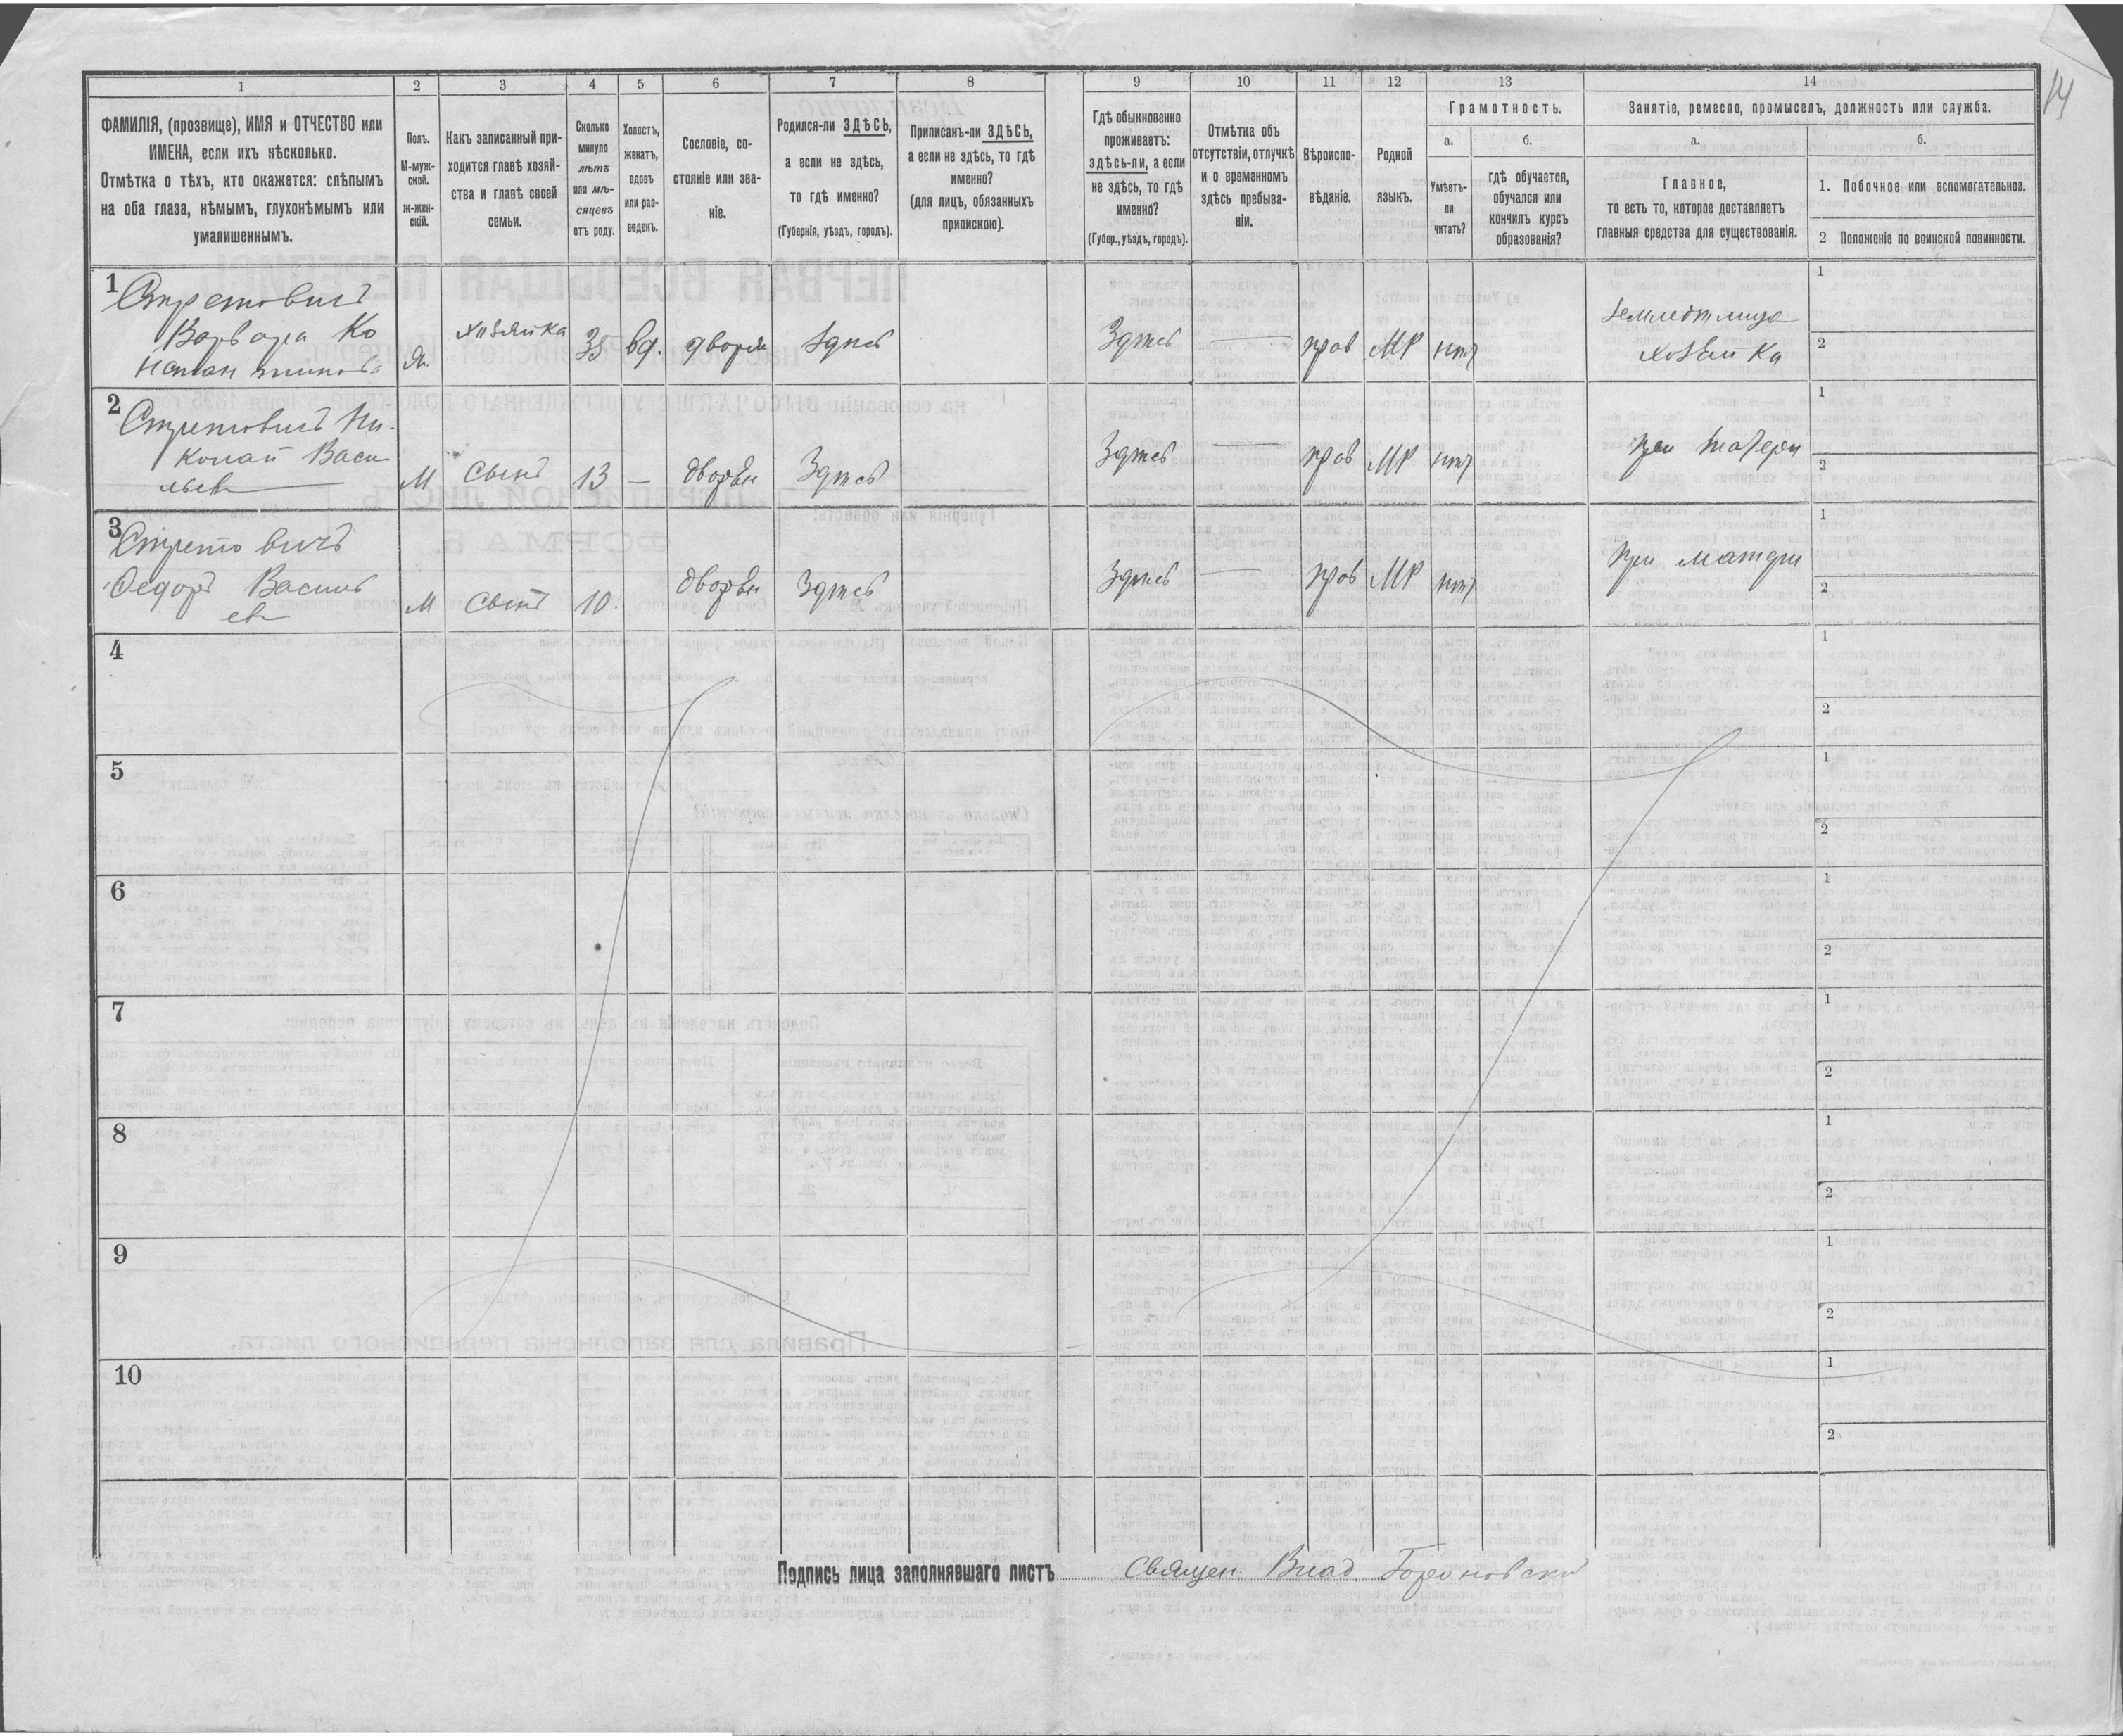 14
1 2 3 4 5 6 7 8 9 10 11 12 13 14
ФАМИЛІЯ, (прозвище), ИМЯ и ОТЧЕСТВО или
ИМЕНА, если ихъ нѣсколько.
Отмѣтка о тѣхъ, кто окажется: слѣпымъ
на оба глаза, нѣмымъ, глухонѣмымъ или
умалишеннымъ.
Полъ.
М-муж-
ской.
ж-жен-
скій.
Какъ записанный при-
ходится главѣ хозяй-
ства и главѣ своей
семьи.
Сколько
минуло
лѣтъ
или мѣ-
сяцевъ
отъ роду.
Холостъ,
женатъ,
вдовъ
или раз-
веденъ.
Сословіе, со-
стояніе или зва-
ніе.
Родился-ли ЗДѢСЬ,
а если не здѣсь,
то гдѣ именно?
(Губернія, уѣздъ, городъ).
Приписанъ-ли ЗДѢСЬ,
а если не здѣсь, то гдѣ
именно?
(для лицъ, обязанныхъ
припискою).
Гдѣ обыкновенно
проживаетъ:
здѣсь-ли, а если
не здѣсь, то гдѣ
именно?
(Губер., уѣздъ, городъ).
Отмѣтка объ
отсутствіи, отлучкѣ
и о временномъ
здѣсь пребыва-
ніи.
Вѣроиспо-
вѣданіе.
Родной
языкъ.
Грамотность.
а.
Умѣетъ-
ли
читать?
б.
гдѣ обучается,
обучался или
кончилъ курсъ
образованія?
Занятіе, ремесло, промыселъ, должность или служба.
а.
Главное,
то есть то, которое доставляетъ
главныя средства для существованія.
б.
1. Побочное или вспомогательное.
2 Положеніе по воинской повинности.
1
Стретовичъ
Варвара Ко
нстантинова
Ж.
хозяйка
35
вд.
дворян
Здѣсь
Здѣсь
—
прав
МР
нѣтъ
земледѣлица
хозяйка
1
2
2
Стретовичъ Ни-
колай Васи
льев
М
Сынъ
13
—
дворян
Здѣсь
Здѣсь
—
прав
МР
нѣтъ
при матери
1
2
3
Стретовичъ
Федоръ Василь
ев
М
Сынъ
10.
дворян
Здѣсь
Здѣсь
—
прав
МР
нѣтъ
при матери
1
2
4
1
2
5
1
2
6
1
2
7
1
2
8
1
2
9
1
2
10
1
2
Подпись лица заполнявшаго листъ Священ. Влад.